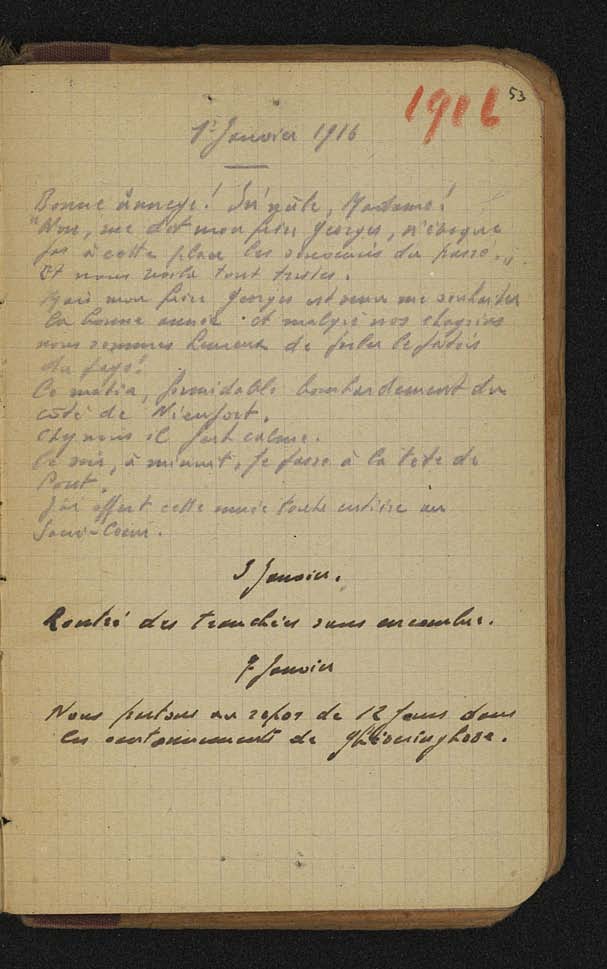 1916
53
1er Janvier 1916
Bonne année! Madame!
"Non, me dit mon frère Georges, n'évoque
pas à cette place les souvenirs du passé."
Et nous voilà tout tristes.
Mais mon frère Georges est venu me souhaiter
la bonne année et malgré nos chagrins
nous sommes heureux de parler le patois
du pays.
Ce matin, formidable bombardement du
côté de Nieuport.
Chez nous il fait calme.
Ce soir, à minuit, je passe à la tête de
Pont.
J'ai offert cette année toute entière au
Sacré-Coeur.
3 Janvier.
Rentré des tranchées sans encombre.
7 Janvier
Nous partons au repos de 12 jours dans
les cantonnements de Ghiveringhove.